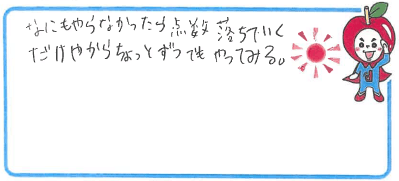 なにもやらなかったら点数落ちていく
だけやからちょっとずつでもやってみる。